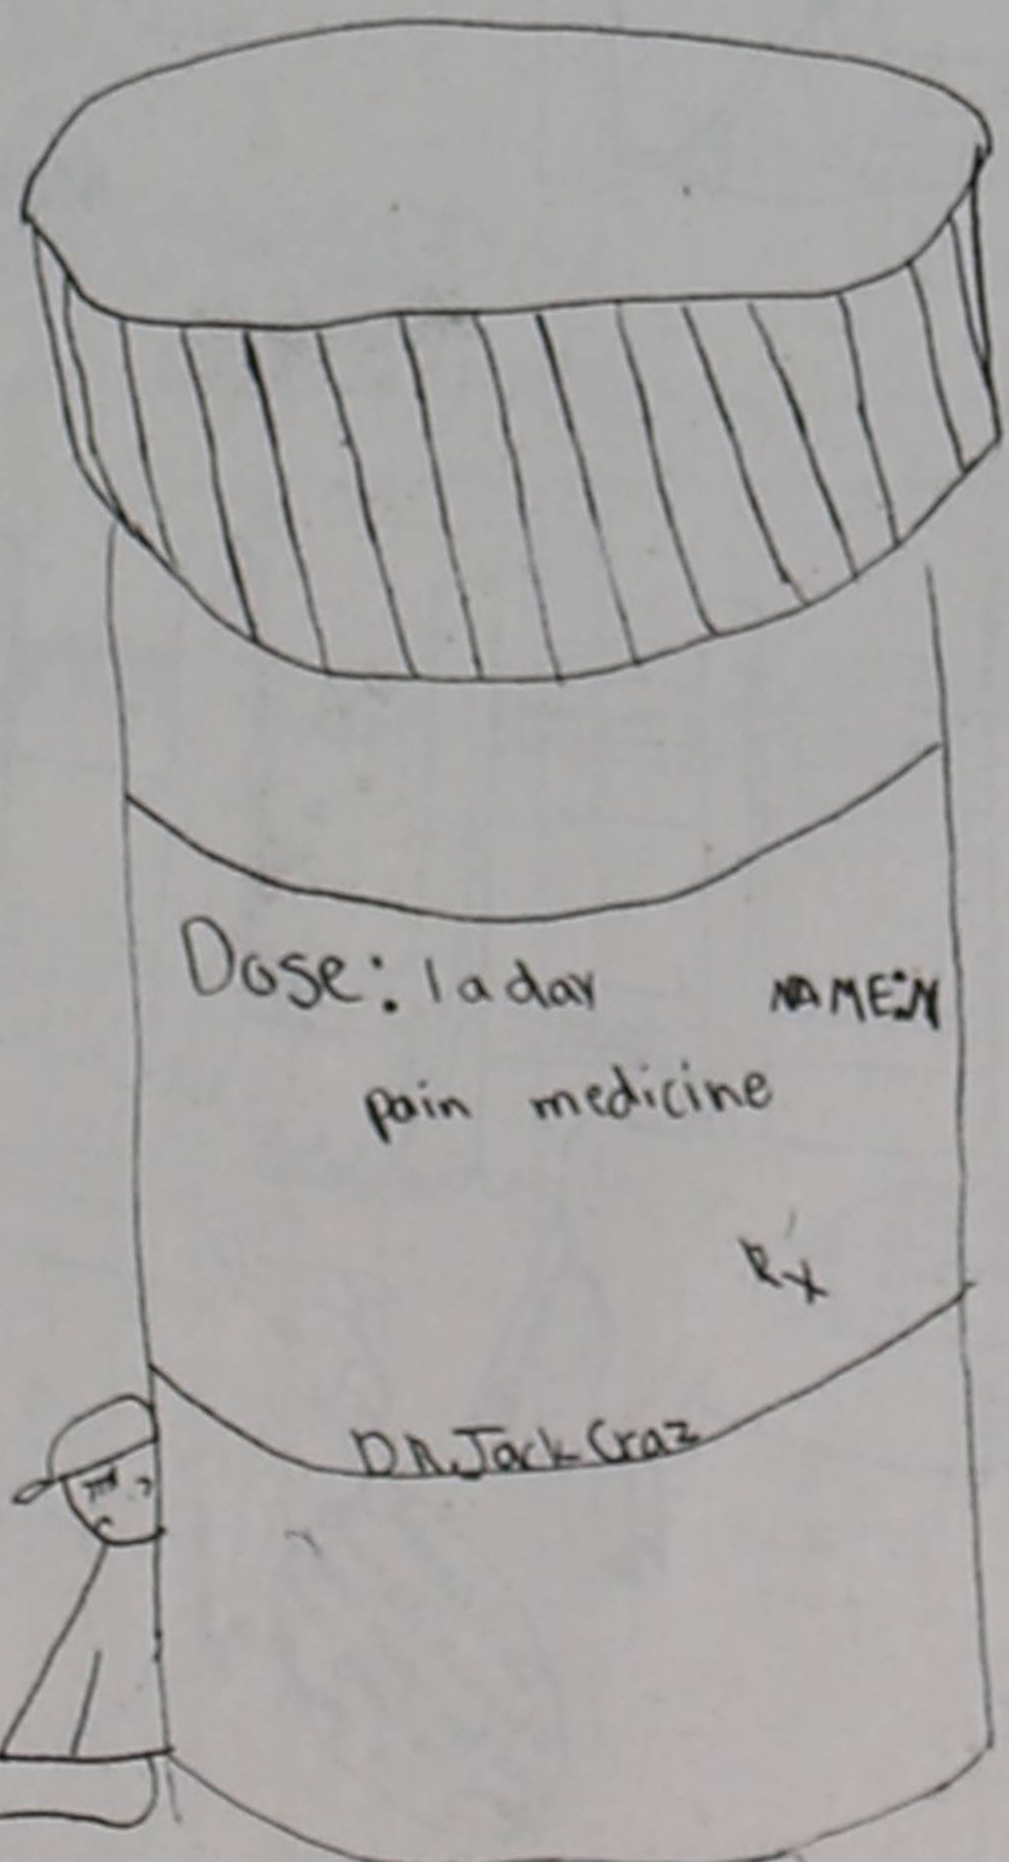 Dose: 1 a day NAME:N
pain medicine
Rx
DR. Jack Craz